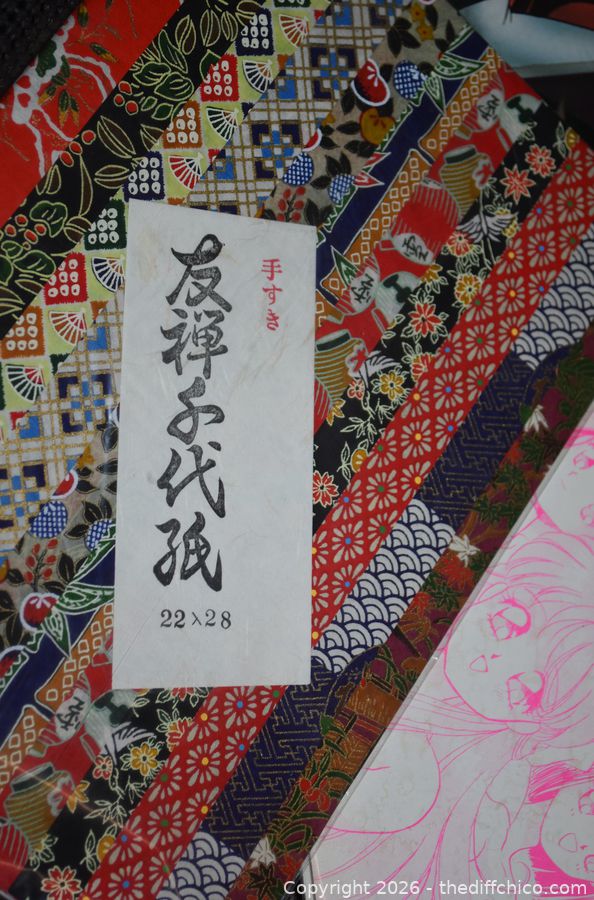 手すき
友禅千代紙
22×28
Copyright 2026 - thediffchico.com